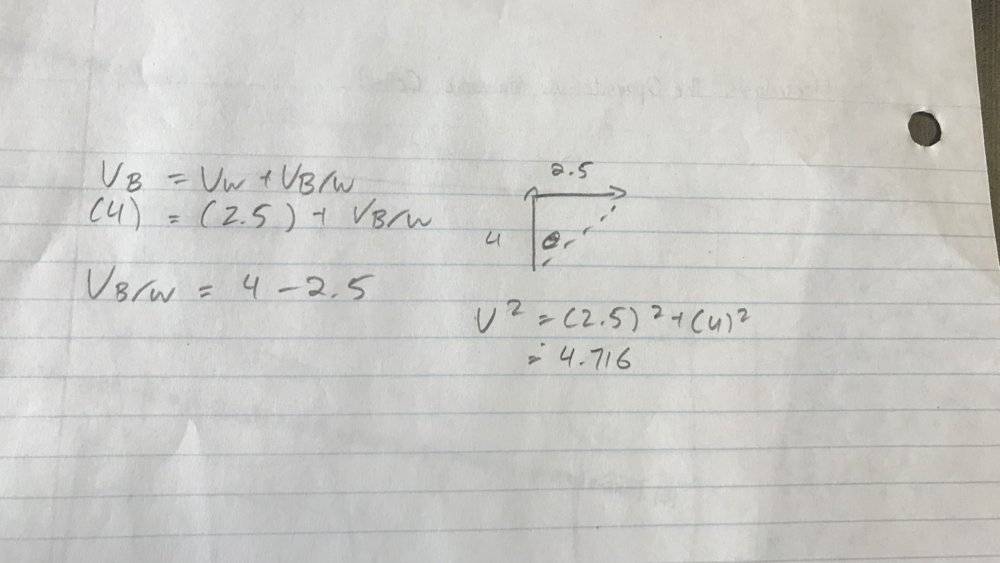 V_B = V_W + V_B/W
(4) = (2.5) + V_B/W
V_B/W = 4 - 2.5
2.5
4
θ
V² = (2.5)² + (4)²
= 4.716